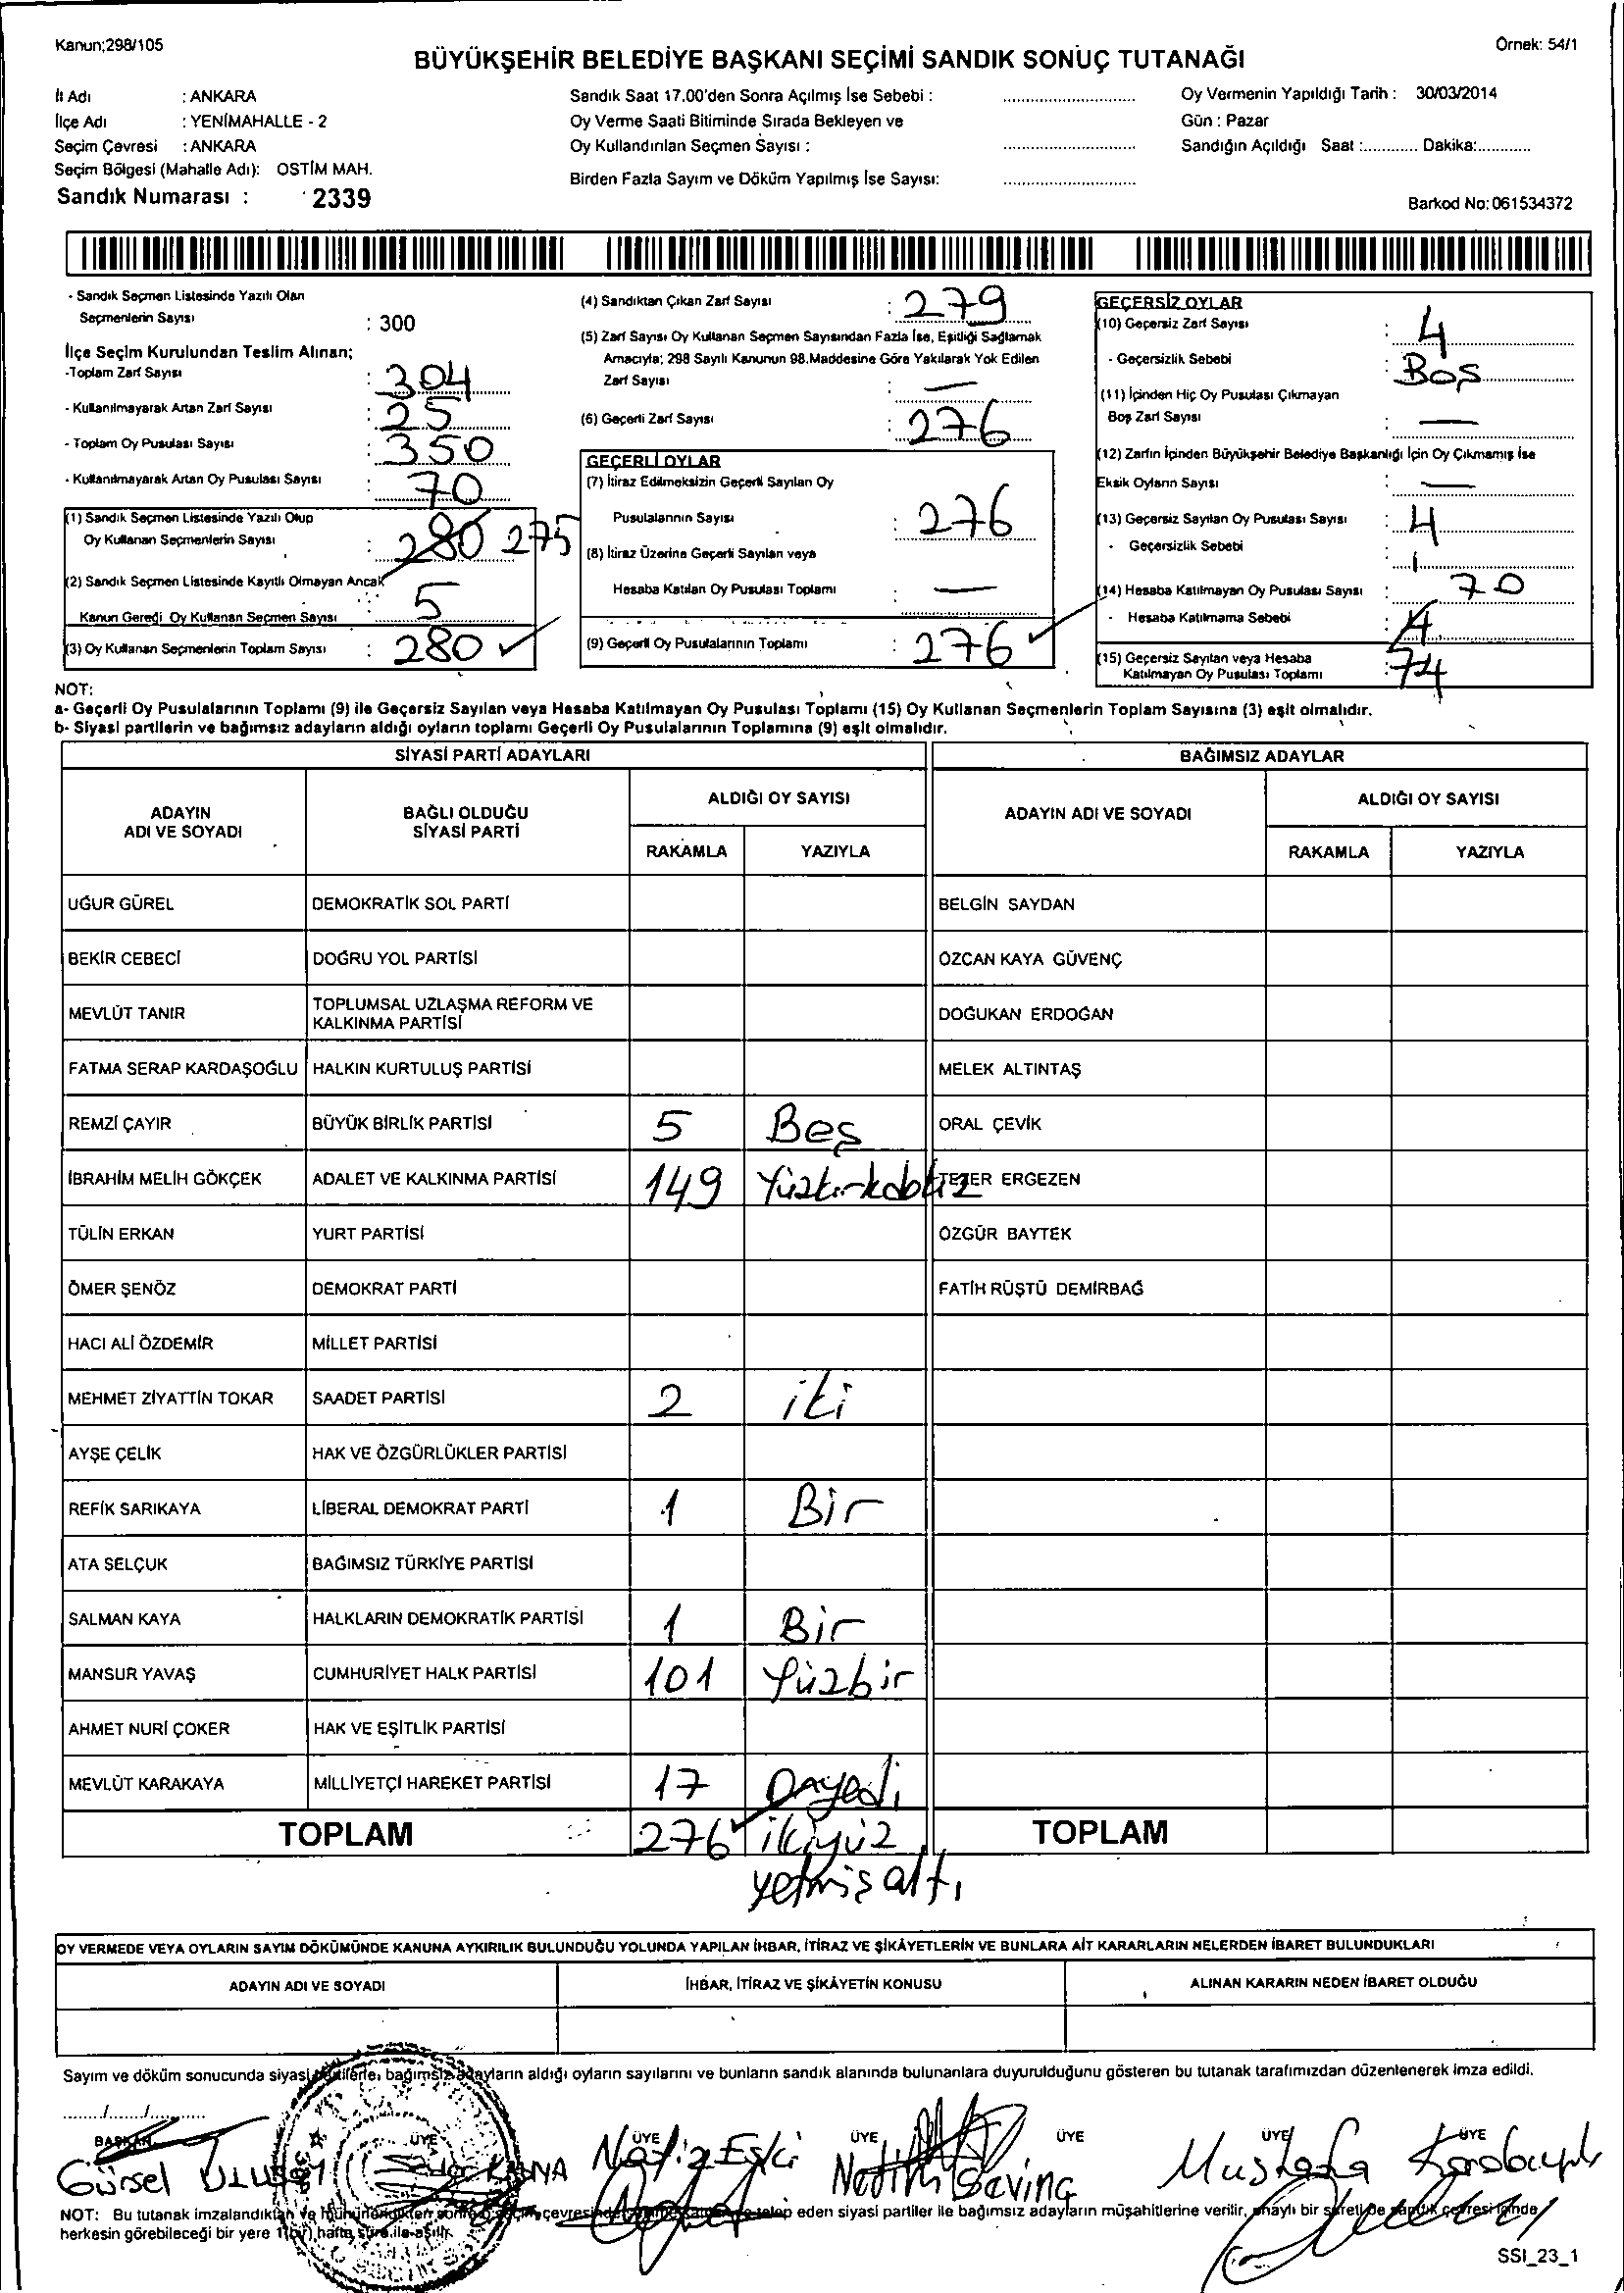 Kanun;298/105
Örnek: 54/1
BÜYÜKŞEHİR BELEDİYE BAŞKANI SEÇİMİ SANDIK SONUÇ TUTANAĞI
İl Adı : ANKARA
İlçe Adı : YENİMAHALLE - 2
Seçim Çevresi : ANKARA
Seçim Bölgesi (Mahalle Adı): OSTİM MAH.
Sandık Numarası : 2339
Sandık Saat 17.00'den Sonra Açılmış İse Sebebi :
Oy Verme Saati Bitiminde Sırada Bekleyen ve
Oy Kullandırılan Seçmen Sayısı :
Birden Fazla Sayım ve Döküm Yapılmış İse Sayısı:
Oy Vermenin Yapıldığı Tarih : 30/03/2014
Gün : Pazar
Sandığın Açıldığı Saat :............ Dakika:............
Barkod No: 061534372
- Sandık Seçmen Listesinde Yazılı Olan
Seçmenlerin Sayısı : 300
İlçe Seçim Kurulundan Teslim Alınan;
-Toplam Zarf Sayısı : 304
- Kullanılmayarak Artan Zarf Sayısı : 25
- Toplam Oy Pusulası Sayısı : 350
- Kullanılmayarak Artan Oy Pusulası Sayısı : 70
(1) Sandık Seçmen Listesinde Yazılı Olup
Oy Kullanan Seçmenlerin Sayısı : 280 275
(2) Sandık Seçmen Listesinde Kayıtlı Olmayan Ancak
Kanun Gereği Oy Kullanan Seçmen Sayısı : 5
(3) Oy Kullanan Seçmenlerin Toplam Sayısı : 280
(4) Sandıktan Çıkan Zarf Sayısı : 279
(5) Zarf Sayısı Oy Kullanan Seçmen Sayısından Fazla İse, Eşitliği Sağlamak
Amacıyla; 298 Sayılı Kanunun 98.Maddesine Göre Yakılarak Yok Edilen
Zarf Sayısı : —
(6) Geçerli Zarf Sayısı : 276
GEÇERLİ OYLAR
(7) İtiraz Edilmeksizin Geçerli Sayılan Oy
Pusulalarının Sayısı : 276
(8) İtiraz Üzerine Geçerli Sayılan veya
Hesaba Katılan Oy Pusulası Toplamı : —
(9) Geçerli Oy Pusulalarının Toplamı : 276
GEÇERSİZ OYLAR
(10) Geçersiz Zarf Sayısı : 4
- Geçersizlik Sebebi : Boş
(11) İçinden Hiç Oy Pusulası Çıkmayan
Boş Zarf Sayısı : —
(12) Zarfın İçinden Büyükşehir Belediye Başkanlığı İçin Oy Çıkmamış İse
Eksik Oyların Sayısı : —
(13) Geçersiz Sayılan Oy Pusulası Sayısı : 4
- Geçersizlik Sebebi :
(14) Hesaba Katılmayan Oy Pusulası Sayısı : 70
- Hesaba Katılmama Sebebi : 4
(15) Geçersiz Sayılan veya Hesaba
Katılmayan Oy Pusulası Toplamı : 74
NOT:
a- Geçerli Oy Pusulalarının Toplamı (9) ile Geçersiz Sayılan veya Hesaba Katılmayan Oy Pusulası Toplamı (15) Oy Kullanan Seçmenlerin Toplam Sayısına (3) eşit olmalıdır.
b- Siyasi partilerin ve bağımsız adayların aldığı oyların toplamı Geçerli Oy Pusulalarının Toplamına (9) eşit olmalıdır.
SİYASİ PARTİ ADAYLARI
BAĞIMSIZ ADAYLAR
ADAYIN
ADI VE SOYADI
BAĞLI OLDUĞU
SİYASİ PARTİ
ALDIĞI OY SAYISI
RAKAMLA YAZIYLA
ADAYIN ADI VE SOYADI
ALDIĞI OY SAYISI
RAKAMLA YAZIYLA
UĞUR GÜREL DEMOKRATİK SOL PARTİ BELGİN SAYDAN
BEKİR CEBECİ DOĞRU YOL PARTİSİ ÖZCAN KAYA GÜVENÇ
MEVLÜT TANIR TOPLUMSAL UZLAŞMA REFORM VE
KALKINMA PARTİSİ DOĞUKAN ERDOĞAN
FATMA SERAP KARDAŞOĞLU HALKIN KURTULUŞ PARTİSİ MELEK ALTINTAŞ
REMZİ ÇAYIR BÜYÜK BİRLİK PARTİSİ 5 Beş ORAL ÇEVİK
İBRAHİM MELİH GÖKÇEK ADALET VE KALKINMA PARTİSİ 149 ERGEZEN
TÜLİN ERKAN YURT PARTİSİ ÖZGÜR BAYTEK
ÖMER ŞENÖZ DEMOKRAT PARTİ FATİH RÜŞTÜ DEMİRBAĞ
HACI ALİ ÖZDEMİR MİLLET PARTİSİ
MEHMET ZİYATTİN TOKAR SAADET PARTİSİ 2 iki
AYŞE ÇELİK HAK VE ÖZGÜRLÜKLER PARTİSİ
REFİK SARIKAYA LİBERAL DEMOKRAT PARTİ 1 Bir
ATA SELÇUK BAĞIMSIZ TÜRKİYE PARTİSİ
SALMAN KAYA HALKLARIN DEMOKRATİK PARTİSİ 1 Bir
MANSUR YAVAŞ CUMHURİYET HALK PARTİSİ 101 Yüzbir
AHMET NURİ ÇOKER HAK VE EŞİTLİK PARTİSİ
MEVLÜT KARAKAYA MİLLİYETÇİ HAREKET PARTİSİ 17 Onyedi
TOPLAM 276 ikiyüz TOPLAM
yetmişaltı
OY VERMEDE VEYA OYLARIN SAYIM DÖKÜMÜNDE KANUNA AYKIRILIK BULUNDUĞU YOLUNDA YAPILAN İHBAR, İTİRAZ VE ŞİKÂYETLERİN VE BUNLARA AİT KARARLARIN NELERDEN İBARET BULUNDUKLARI
ADAYIN ADI VE SOYADI İHBAR, İTİRAZ VE ŞİKÂYETİN KONUSU ALINAN KARARIN NEDEN İBARET OLDUĞU
Sayım ve döküm sonucunda siyasi partilerle, bağımsız adayların aldığı oyların sayılarını ve bunların sandık alanında bulunanlara duyurulduğunu gösteren bu tutanak tarafımızdan düzenlenerek imza edildi.
......./......./............
BAŞKAN ÜYE ÜYE ÜYE ÜYE ÜYE ÜYE
Gürsel Nafiz Eski Nedim Sevinç Mustafa
NOT: Bu tutanak imzalandıktan ve mühürlendikten sonra seçim çevresinde talep eden siyasi partiler ile bağımsız adayların müşahitlerine verilir, onaylı bir sureti de sandık çevresi içinde
herkesin görebileceği bir yere 1(bir) hafta süre ile asılır.
SSI_23_1